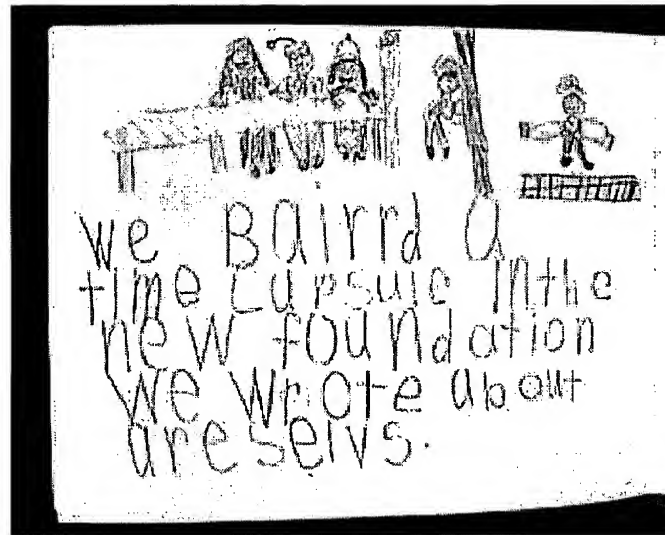 we Bairrd a
time Cupsule in the
new foundation
we wrote about
areselvs.